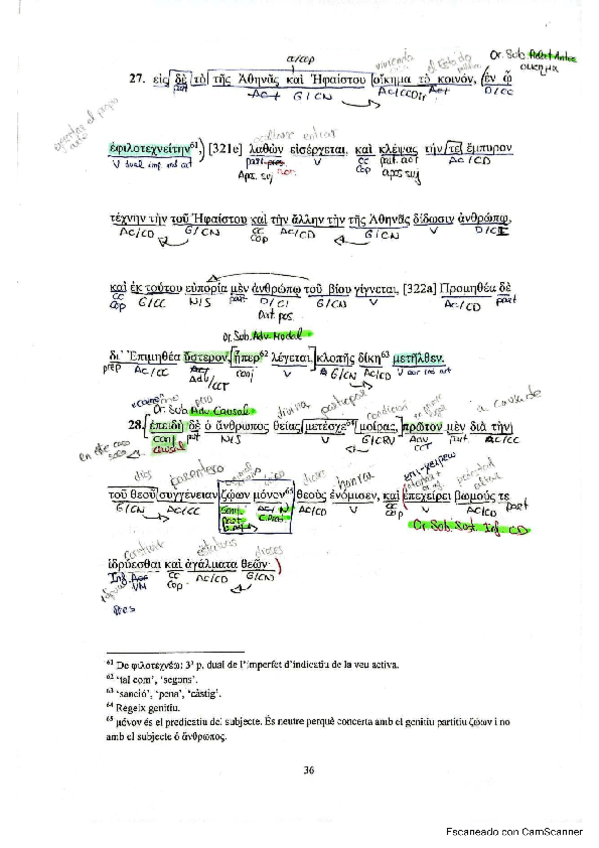 a/cop
viviendo
Or. Sub. Relat. Antec
οικημα
27. εἰς δὲ τὸ τῆς Ἀθηνᾶς καὶ Ἡφαίστου οἴκημα τὸ κοινόν, ἐν ᾧ
part Ac+ G/CN Ac/CCDir Ac+ D/CC
ἐφιλοτεχνείτην⁶¹, [321e] λαθὼν εἰσέρχεται, καὶ κλέψας τήν τε ἔμπυρον
V dual imp. ind act V CC cop part. aor Ac/CD
τέχνην τὴν τοῦ Ἡφαίστου καὶ τὴν ἄλλην τὴν τῆς Ἀθηνᾶς δίδωσιν ἀνθρώπῳ,
Ac/CD G/CN CC cop Ac/CD G/CN V D/CI
καὶ ἐκ τούτου εὐπορία μὲν ἀνθρώπῳ τοῦ βίου γίγνεται, [322a] Προμηθέα δὲ
CC cop G/CC N/S part D/CI G/CN V Ac/CD part
Or. Sub. Adv. Modal
δι᾽ Ἐπιμηθέα ὕστερον, ᾗπερ⁶² λέγεται, κλοπῆς δίκη⁶³ μετῆλθεν.
prep Ac/CC Adv/CCT conj V G/CN Ac/CD V aor ind act
Or. Sub. Adv. Causal
divina participar
a causa de
28. ἐπειδὴ δὲ ὁ ἄνθρωπος θείας μετέσχε⁶⁴ μοίρας, πρῶτον μὲν διὰ τὴν
conj causal part N/S V G/CRV Adv CCT part Ac/CC
dios parentesco
τοῦ θεοῦ συγγένειαν ζῴων μόνον⁶⁵ θεοὺς ἐνόμισεν, καὶ ἐπεχείρει βωμούς τε
G/CN Ac/CC Ac/CD V CC cop V Ac/CD part
Or. Sub. Sust. Inf. CD
construir dioses
ἱδρύεσθαι καὶ ἀγάλματα θεῶν·
CC cop Ac/CD G/CN
⁶¹ De φιλοτεχνέω: 3ª p. dual de l’imperfet d’indicatiu de la veu activa.
⁶² ‘tal com’, ‘segons’.
⁶³ ‘sanció’, ‘pena’, ‘càstig’.
⁶⁴ Regeix genitiu.
⁶⁵ μόνον és el predicatiu del subjecte. És neutre perquè concerta amb el genitiu partitiu ζῴων i no
amb el subjecte ὁ ἄνθρωπος.
36
Escaneado con CamScanner